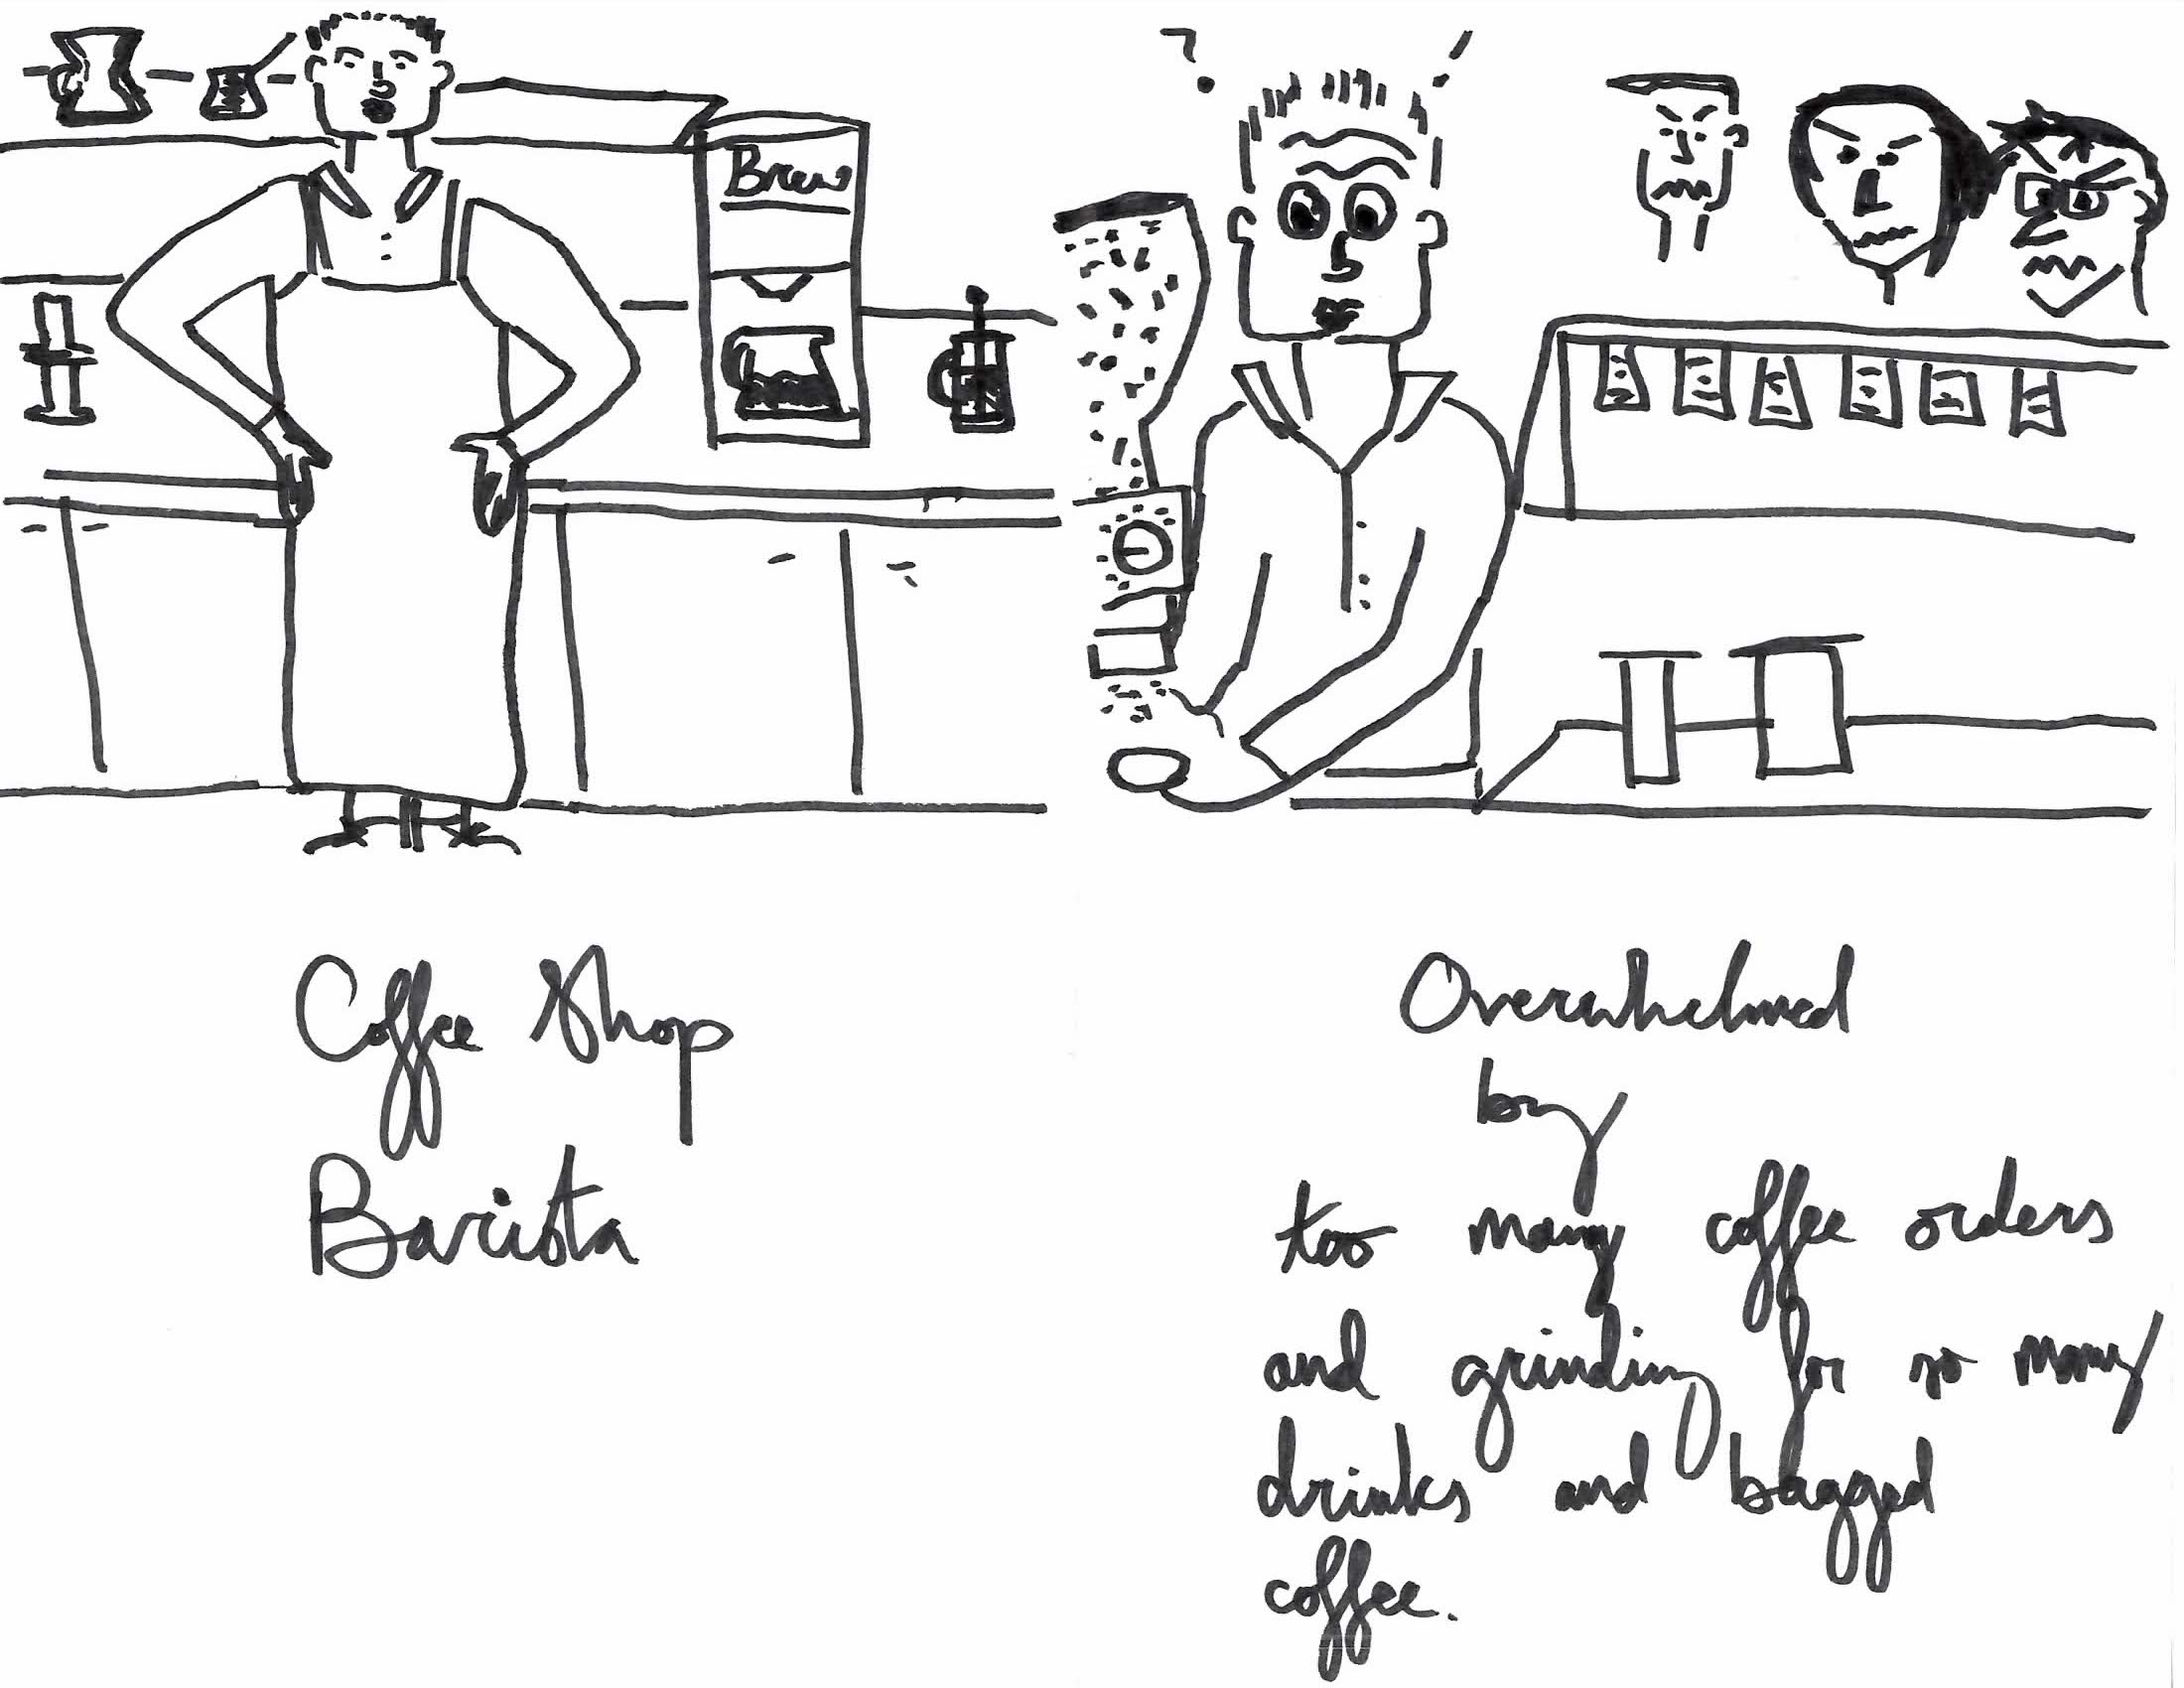 Brew
Coffee Shop
Barista
Overwhelmed
by
too many coffee orders
and grinding for so many
drinks and bagged
coffee.